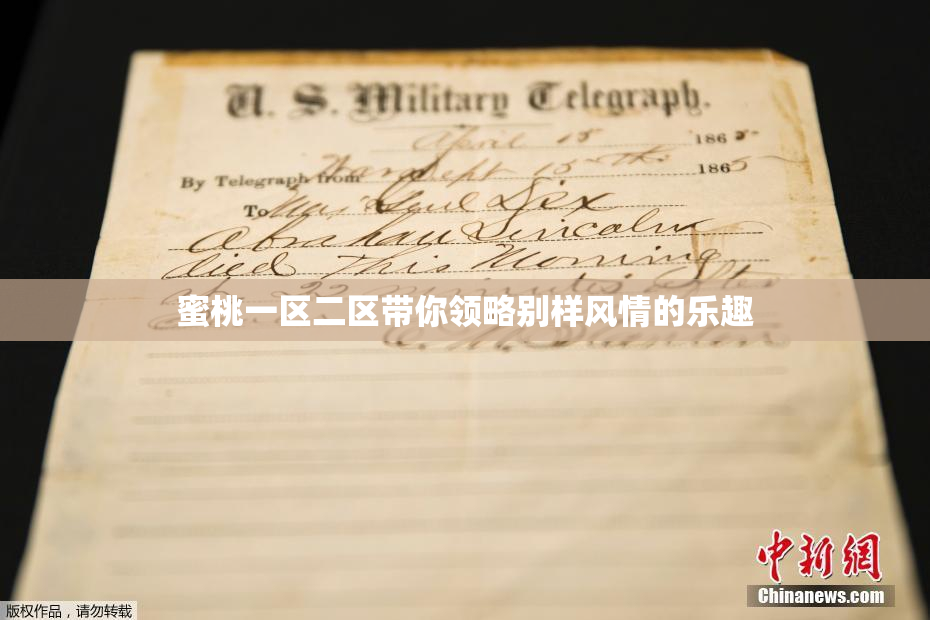 U. S. Military Telegraph.
April 15 1865
By Telegraph from War Dept 15th 1865
To Maj Genl Dix
Abraham Lincoln
died this Morning
at 22 minutes after
蜜桃一区二区带你领略别样风情的乐趣
E. M. Stanton
中新网
Chinanews.com
版权作品，请勿转载